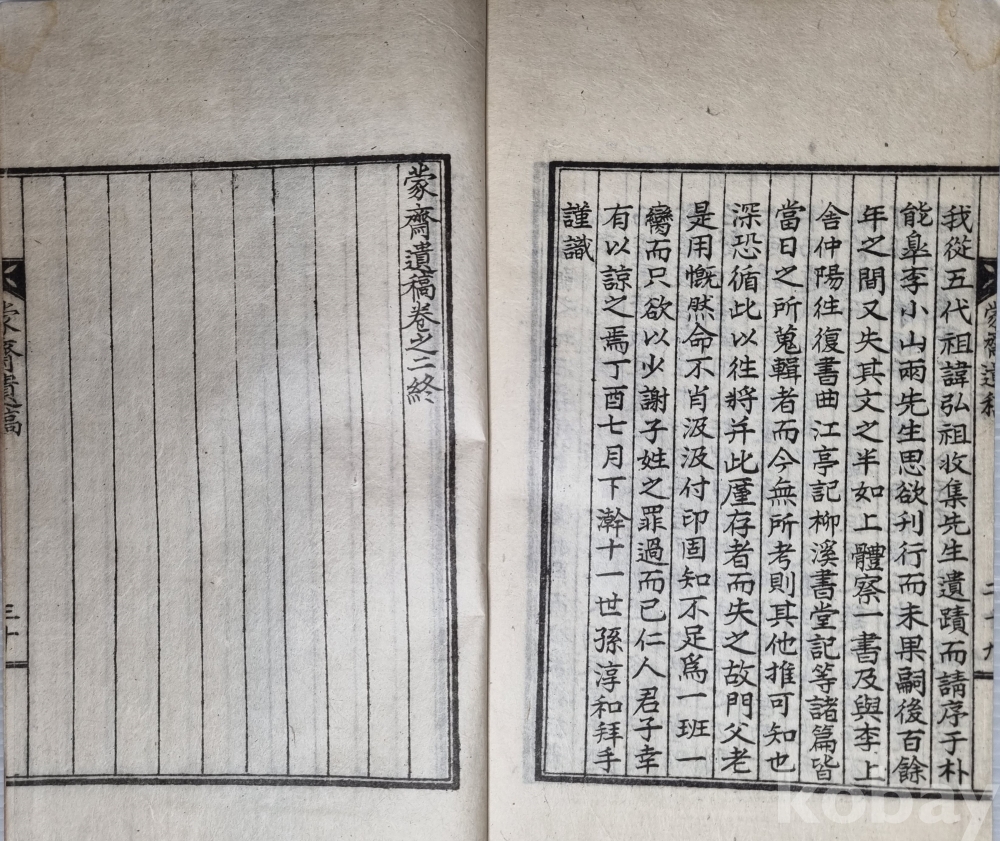 我從五代祖諱弘祖收集先生遺蹟而請序于朴
能皐李小山兩先生思欲刊行而未果嗣後百餘
年之間又失其文之半如上體察一書及與李上
舍仲陽往復書曲江亭記柳溪書堂記等諸篇皆
當日之所蒐輯者而今無所考則其他推可知也
深恐循此以往將并此廑存者而失之故門父老
是用慨然命不肖汲汲付印固知不足爲一班一
臠而只欲以少謝子姓之罪過而已仁人君子幸
有以諒之焉丁酉七月下澣十一世孫淳和拜手
謹識
蒙齋遺稿卷之二終
蒙齋遺稿
三十
kobay